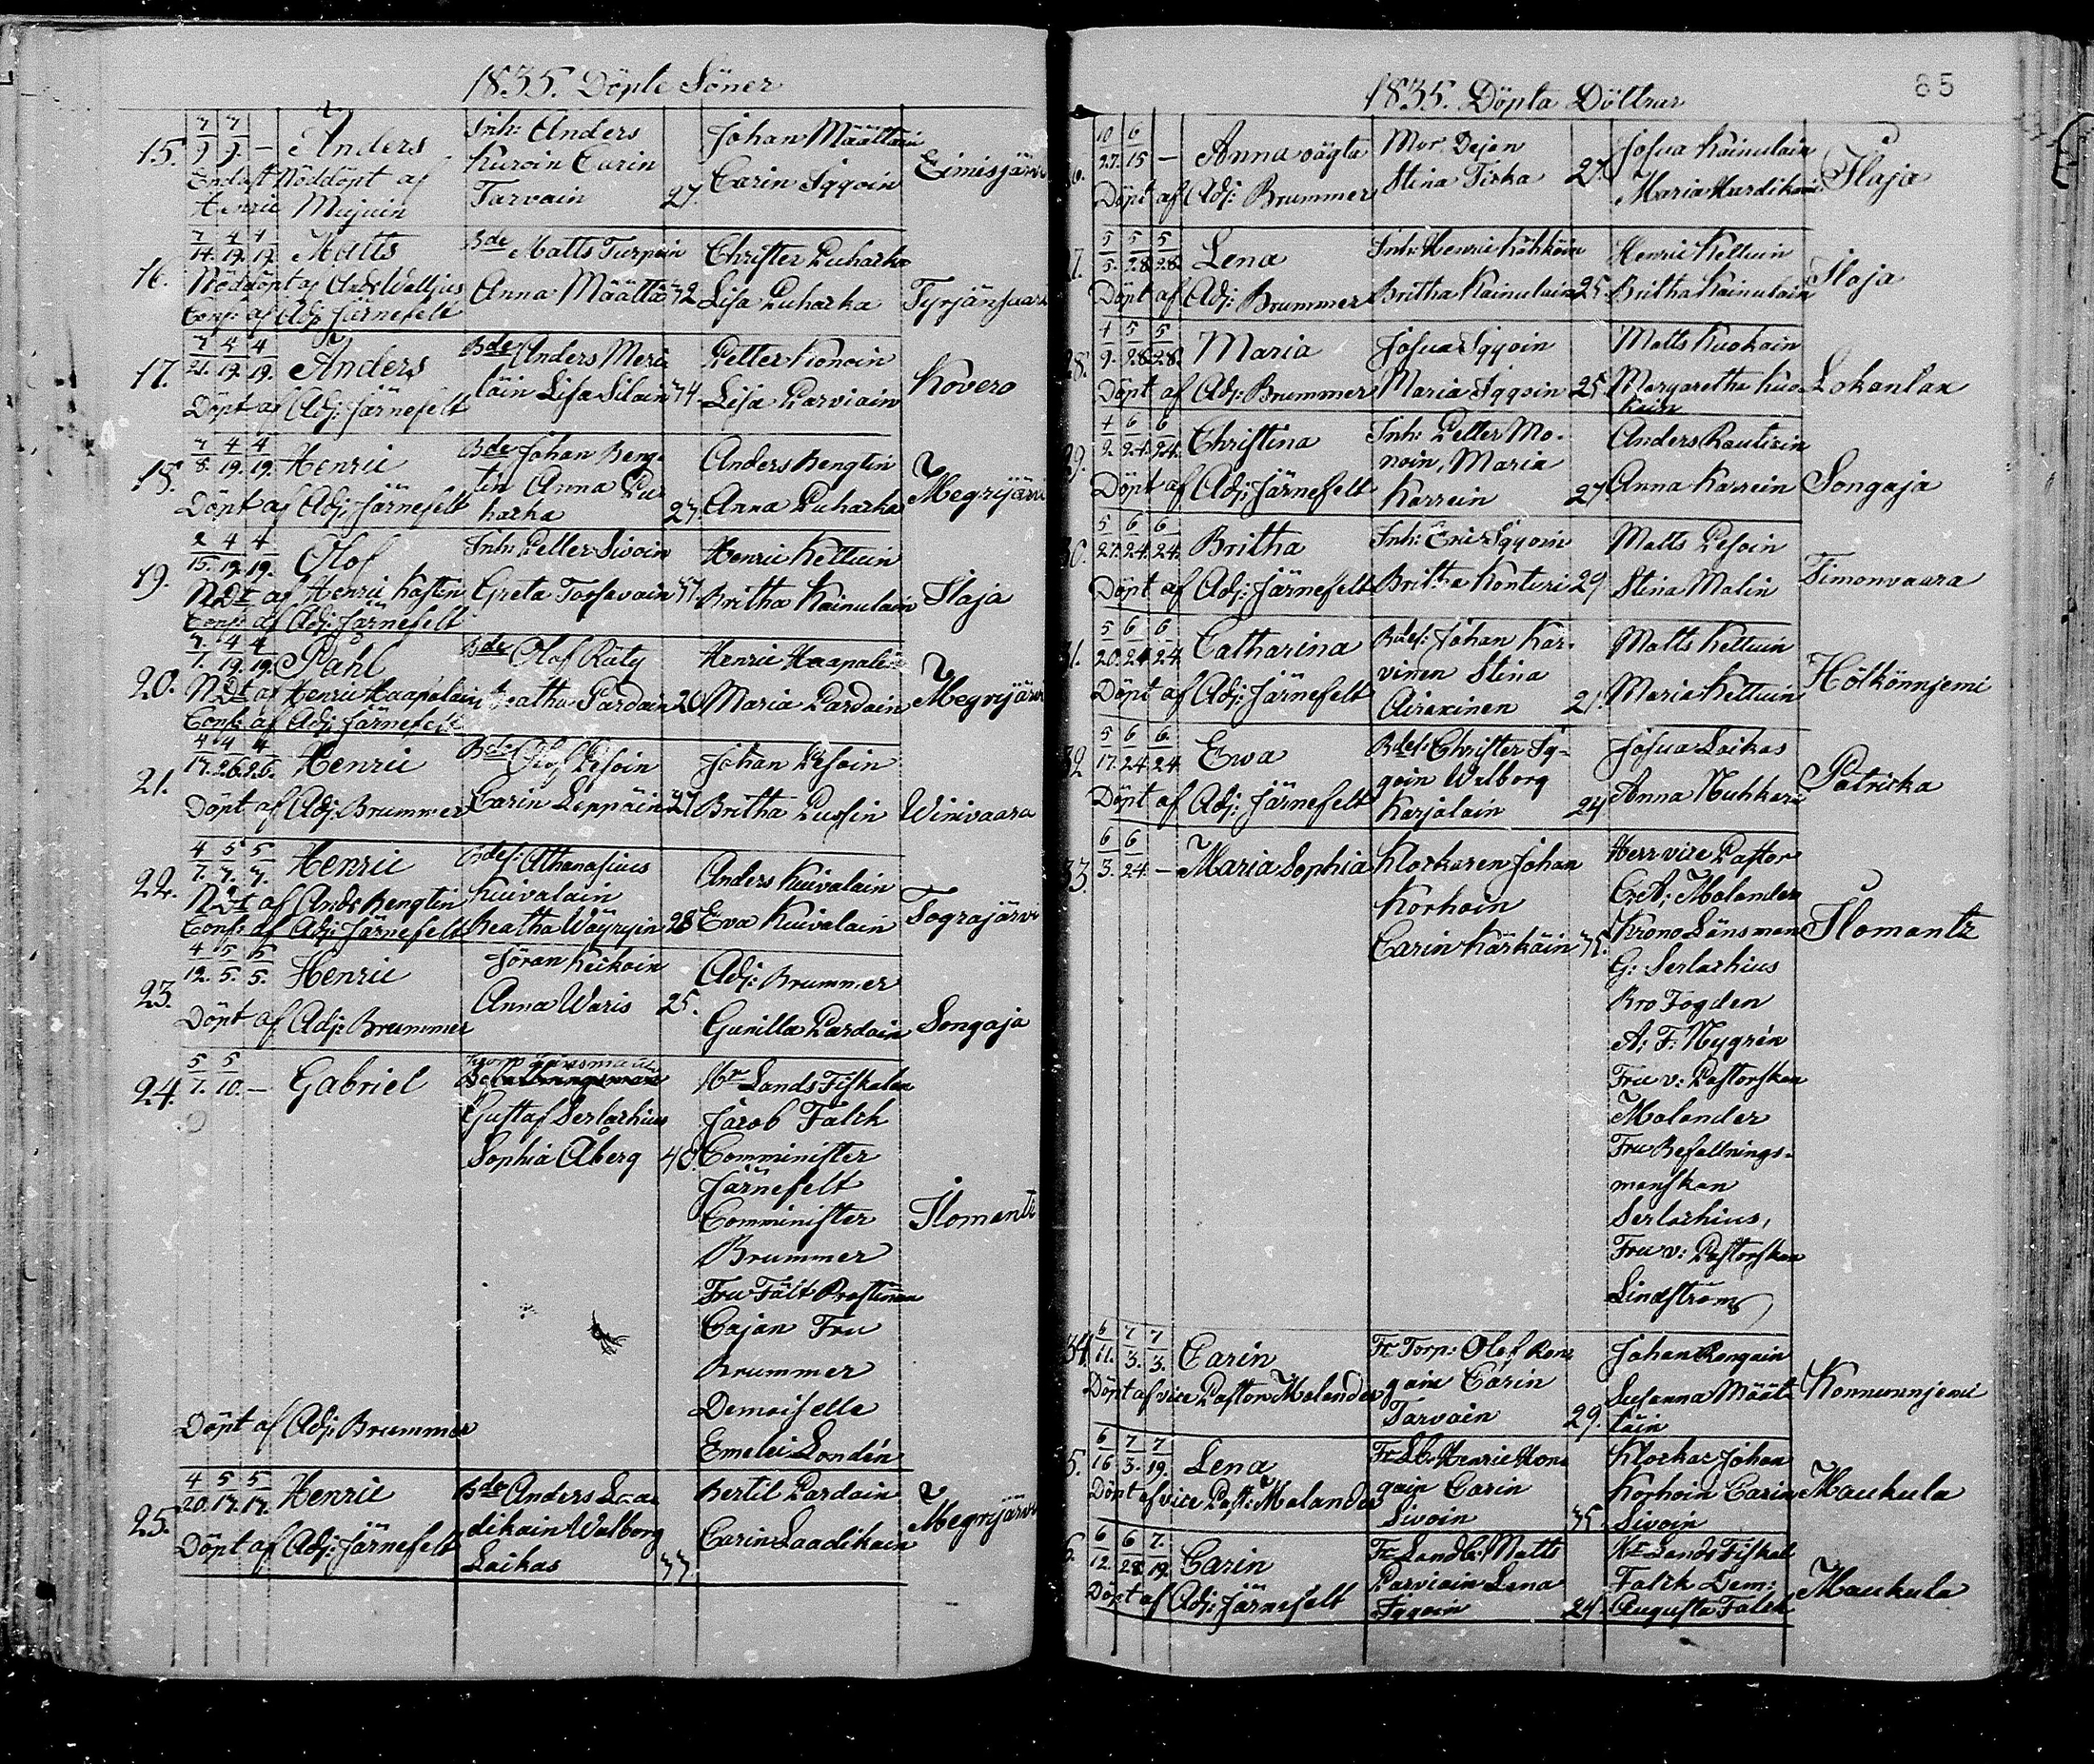 1835. Döpte Söner
15. 7/9. 7/9. — Anders
Endast Nöddöpt af
Henric Mujuin
Inh: Anders
Kuroin Carin
Tarvain 27.
Johan Määttäin
Carin Iqqoin
Eimisjärvi
16. 4/19. 4/19. Matts
Nöddöpt af And: Walljus
Conf: af Adj: Järnefelt
Bde Matts Turpein
Anna Määttä 42
Christer Puharka
Lisa Puharka
Tyrjänsaari
17. 4/19. 4/19. Anders
Döpt af Adj: Järnefelt
Bde Anders Meri
läin Lisa Silain
Petter Konoin
Lisa Parviain
Kovero
18. 4/19. 4/19. Henric
Döpt af Adj: Järnefelt
Bde Johan Beng-
tin Anna Pu
harka 27.
Anders Bengtin
Anna Puharka
Megrijärvi
19. 2/15. 4/19. 4/19. Olof
NDt af Henric Kosten
Conf: af Adj: Järnefelt
Inh: Petter Sivoin
Greta Torsavain
Henric Kettuin
Britha Kainulain
Ilaja
20. 4/19. 4/19. Påhl
NDt af Henric Haapalain
Conf: af Adj: Järnefelt
Bde Olof Räty
Beatha Pardain 20
Henric Haapalain
Maria Pardain
Megrijärvi
21. 4/17. 4/26. 4/26. Henric
Döpt af Adj: Brummer
Bde Olof Pesoin
Carin Leppäin 27
Johan Pesoin
Britha Pussin
Winivaara
22. 4/7. 5/7. 5/7. Henric
NDt af Ands Bengtin
Conf: af Adj: Järnefelt
Bdes: Athanasius
Kuivalain
Beatha Wäyryin 28
Anders Kuivalain
Eva Kuivalain
Sograjärvi
23. 4/12. 5/5. 5/5. Henric
Döpt af Adj: Brummer
Jöran Keikoin
Anna Waris 25.
Adj: Brummer
Gunilla Pardain
Songaja
24. 5/1. 5/10. — Gabriel
Döpt af Adj: Brummer
Gustaf Serlachius
Sophia Åberg 40.
Hr Lands Fiskalen
Jacob Falck
Comminister
Järnefelt
Comminister
Brummer
Fru Fält Prostinnan
Cajan Fru
Brummer
Demoiselle
Emelei Londén
Ilomants
25. 4/20. 5/17. 5/17. Henric
Döpt af Adj: Järnefelt
Bde Anders Laa
dikain Walborg
Laikas 33.
Bertil Pardain
Carin Laadikain
Megrijärvi
1835. Döpta Döttrar 85
10/27. 6/15 — Anna oägta
Döpt af Adj: Brummer
Mor. Dejan
Stina Tirka 27.
Josua Kainulain
Maria Hardikain
Ilaja
5/5. 5/28. 5/28. Lena
Döpt af Adj: Brummer
Inh: Henric Kähköin
Britha Kainulain 25.
Henric Kettuin
Britha Kainulain
Ilaja
28. 4/9. 5/28. 5/28. Maria
Döpt af Adj: Brummer
Josua Iqqoin
Maria Iqqoin 25.
Matts Kuokain
Margaretha Kuo-
kain
Lokanlax
29. 4/2. 6/24. 6/24. Christina
Döpt af Adj: Järnefelt
Inh: Petter Mo-
noin, Maria
Karrein 27.
Anders Rautiain
Anna Karrein
Songaja
30. 5/27. 6/24. 6/24. Britha
Döpt af Adj: Järnefelt
Inh: Eric Iqqoin
Britha Konturi 29
Matts Pesoin
Stina Malin
Timonvaara
31. 5/20. 6/24 6/24 Catharina
Döpt af Adj: Järnefelt
Bdes: Johan Kar-
vinen Stina
Airaxinen 21.
Matts Kettuin
Maria Kettuin
Hölkönnjemi
32 5/17. 6/24 6/24 Ewa
Döpt af Adj: Järnefelt
Bdes: Christer Iq-
qoin Walborg
Karjalain 24
Josua Laikas
Anna Nuhkari
Patricka
33 6/3. 6/24. — Maria Sophia
Klockaren Johan
Korhoin
Carin Kärkäin 35.
Herr vice Pastor
C: A: Molander
Krono Länsman
G: Serlachius
Bro Fogden
A: F: Nygrén
Fru v: Pastorskan
Molander
Fru Befallnings-
manskan
Serlachius,
Fru v: Pastorskan
Lindström
Ilomantz
34 6/11. 7/3. 7/3. Carin
Döpt af vice Pastor Molander
Fr Torp: Olof Ron
gain Carin
Tarvain 29.
Johan Rongain
Susanna Määt-
täin
Konnunnjemi
5. 6/16 7/3. 7/19. Lena
Döpt af vice Past: Molander
Fr Lb: Henric Ron
gain Carin
Sivoin 35.
Klockar Johan
Korhoin Carin
Sivoin
Maukula
6. 6/12. 6/28. 7/19 Carin
Döpt af Adj: Järnefelt
Fr Landb: Matts
Parviain Lena
Iqqoin 24.
Hr Lands Fiskal
Falck Dem:
Augusta Falck
Maukula